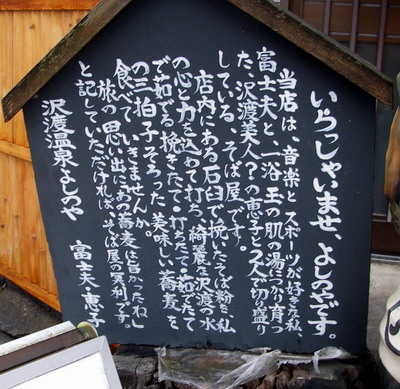 いらっしゃいませ、よしのやです。
当店は、音楽とスポーツが好きな私、
富士夫と、一浴玉の肌の湯につかり育っ
た、沢渡美人?の恵子と2人で切り盛り
している、そば屋です。
店内にある石臼で挽いたそば粉を、私
の心と力を込めて打ち、綺麗な沢渡の水
で茹でる、挽きたて・打ちたて・茹でたて
の三拍子そろった美味しい蕎麦を
食べていきませんか。
旅の思い出に「あの蕎麦は旨かったね」
と記していただければ、そば屋の冥利です。
沢渡温泉よしのや
富士夫・恵子